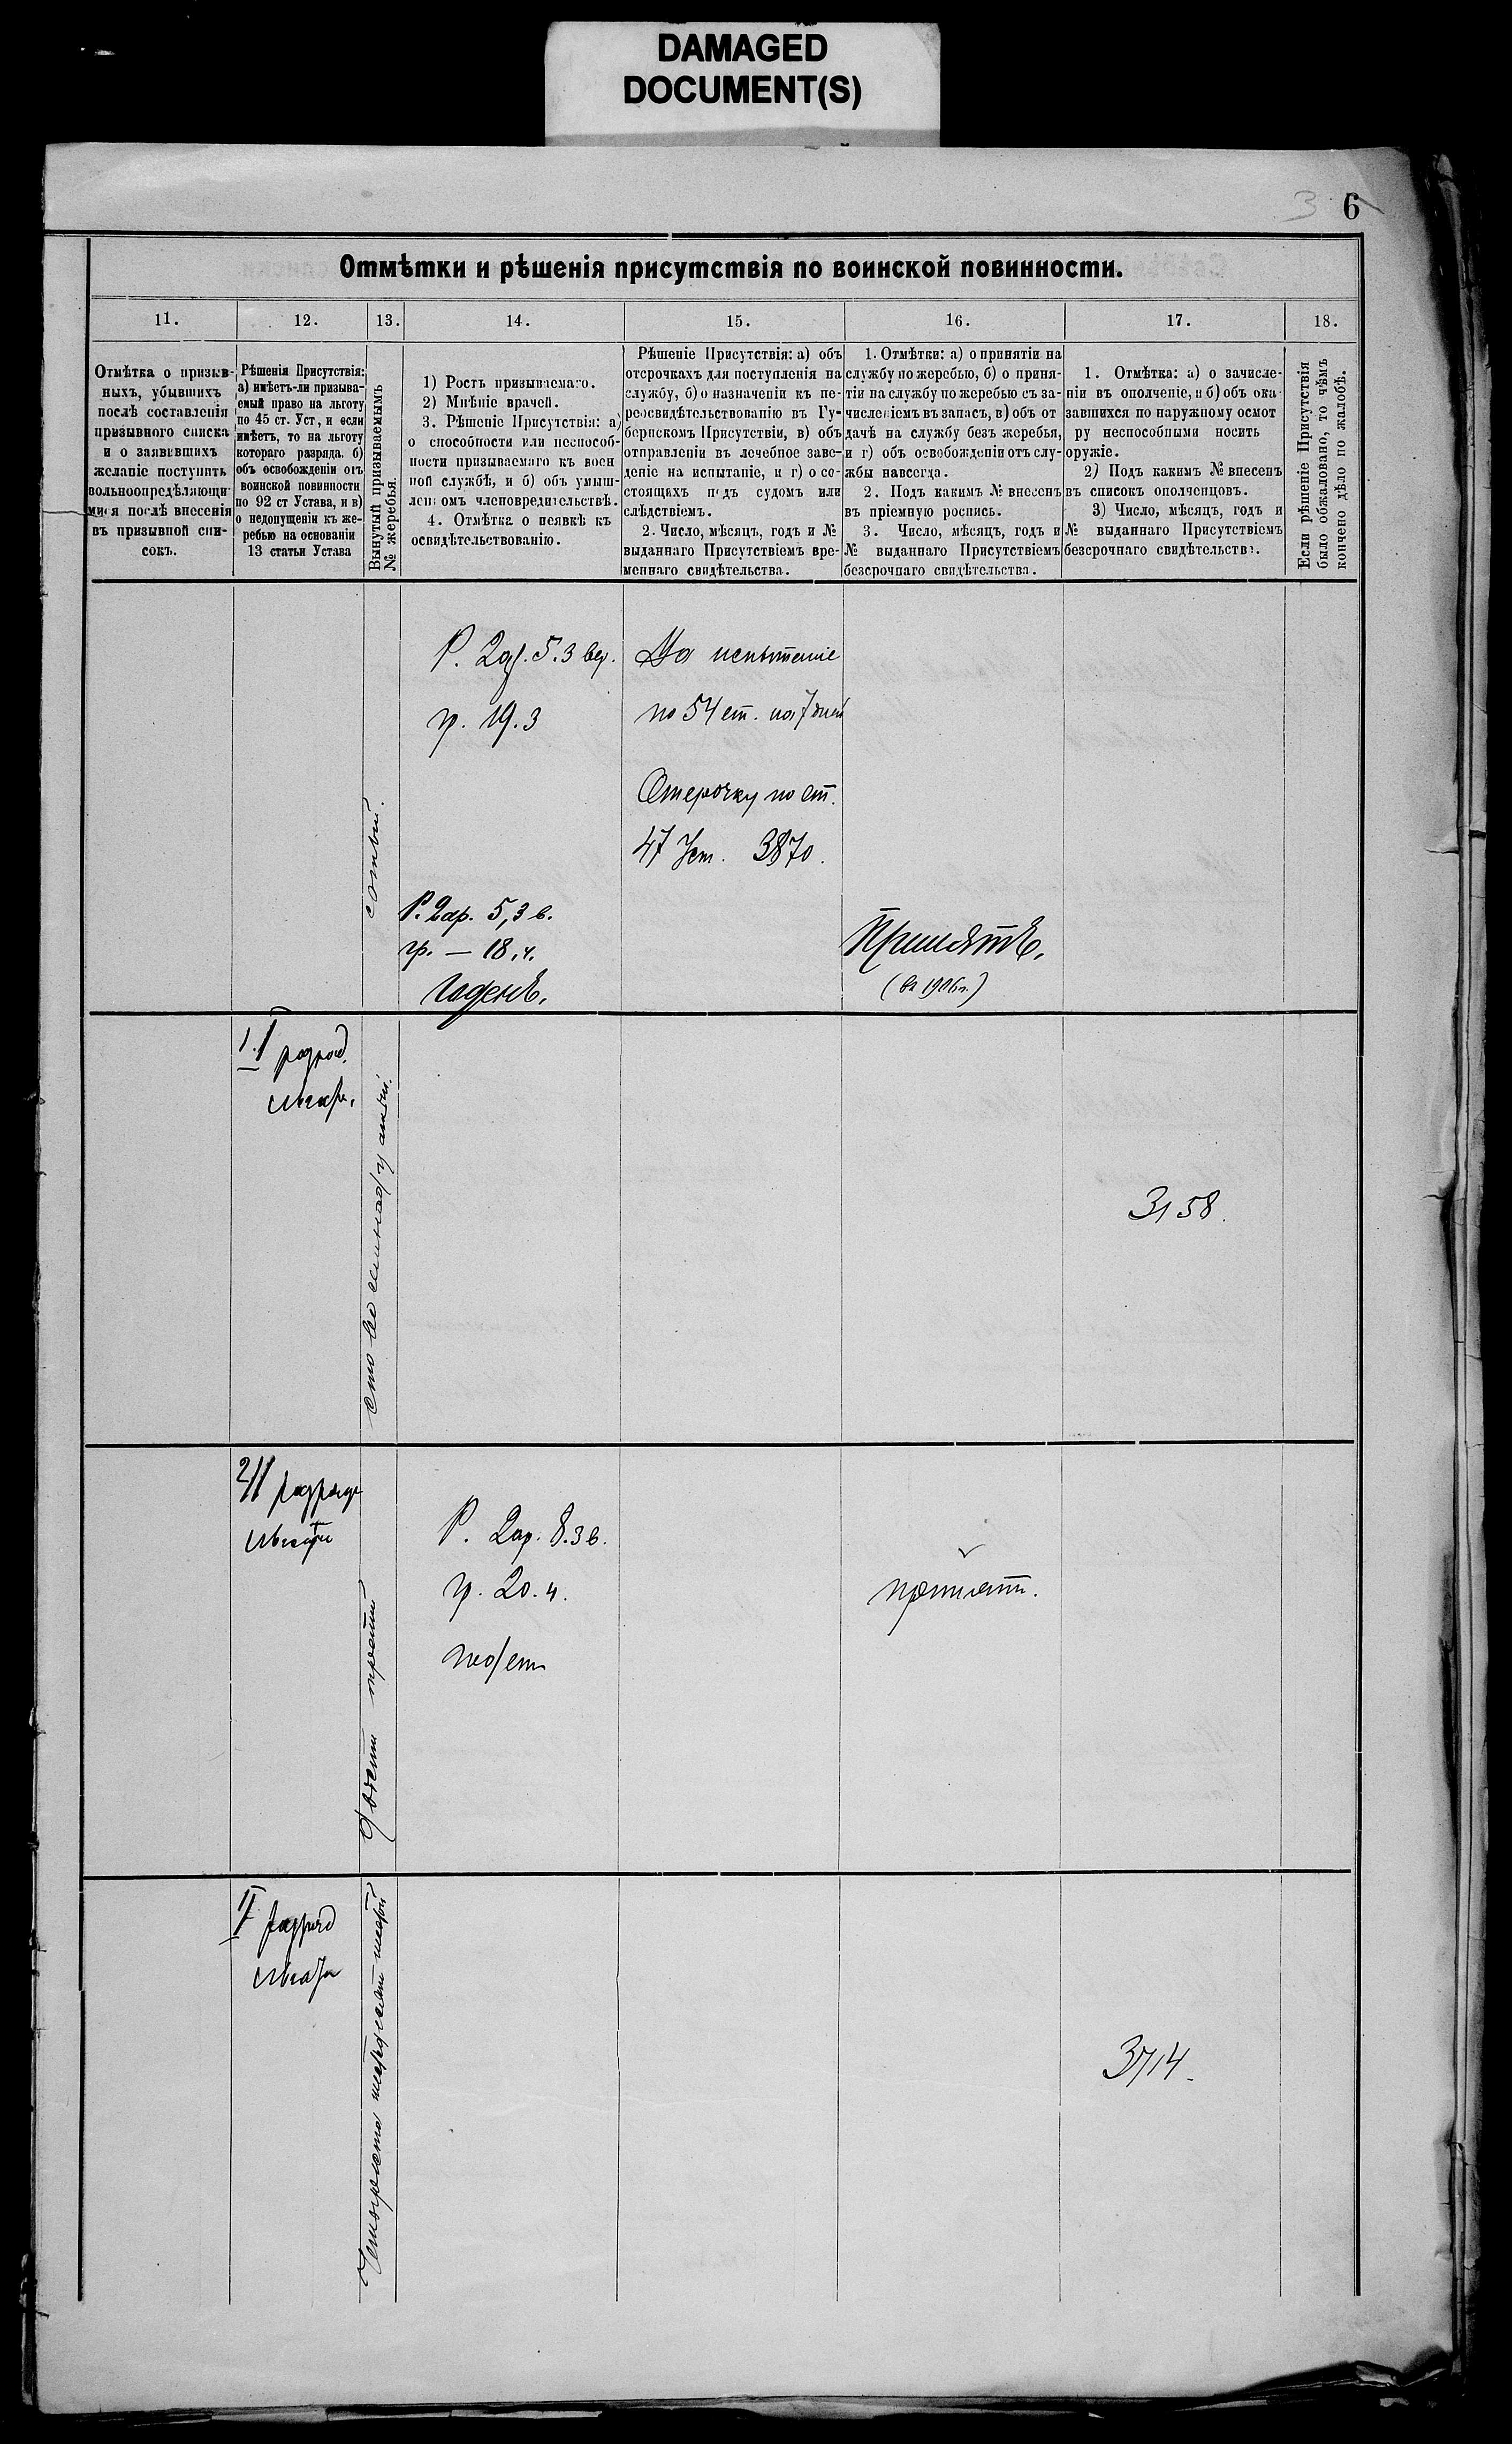 DAMAGED
DOCUMENT(S)
3 6
Отмѣтки и рѣшенія присутствія по воинской повинности.
11. 12. 13. 14. 15. 16. 17. 18.
Отмѣтка о призыв-
ныхъ, убывшихъ
послѣ составленія
призывного списка
и о заявившихъ
желаніе поступить
вольноопредѣляющи-
мися послѣ внесенія
въ призывной спи-
сокъ.
Рѣшенія Присутствія:
а) имѣетъ-ли призыва-
емый право на льготу
по 45 ст. Уст, и если
имѣетъ, то на льготу
котораго разряда. б)
объ освобожденіи отъ
воинской повинности
по 92 ст Устава, и в)
о недопущеніи къ же-
ребью на основаніи
13 статьи Устава
Вынутый призываемымъ
№ жеребья.
1) Ростъ призываемаго.
2) Мнѣніе врачей.
3. Рѣшеніе Присутствія: а)
о способности или неспособ-
ности призываемаго къ воен
ной службѣ, и б) объ умыш-
леномъ членовредительствѣ.
4. Отмѣтка о неявкѣ къ
освидѣтельствованію.
Рѣшеніе Присутствія: а) объ
отсрочкахъ для поступленія на
службу, б) о назначеніи къ пе-
реосвидѣтельствованію въ Гу-
бернскомъ Присутствіи, в) объ
отправленіи въ лечебное заве-
деніе на испытаніе, и г) о со-
стоящихъ подъ судомъ или
слѣдствіемъ.
2. Число, мѣсяцъ, годъ и №
выданнаго Присутствіемъ вре-
меннаго свидѣтельства.
1. Отмѣтки: а) о принятіи на
службу по жеребью, б) о приня-
тіи на службу по жеребью съ за-
численіемъ въ запасъ, в) объ от
дачѣ на службу безъ жеребья,
и г) объ освобожденіи отъ слу-
жбы навсегда.
2. Подъ какимъ № внесенъ
въ пріемную роспись.
3. Число, мѣсяцъ, годъ и
№ выданнаго Присутствіемъ
безсрочнаго свидѣтельства.
1. Отмѣтка: а) о зачисле-
ніи въ ополченіе, и б) объ ока
завшихся по наружному осмот
ру неспособными носить
оружіе.
2) Подъ какимъ № внесенъ
въ список ополченцовъ.
3) Число, мѣсяцъ, годъ и
№ выданнаго Присутствіемъ
безсрочнаго свидѣтельства.
Если рѣшеніе Присутствія
было обжаловано, то чѣмъ
кончено дѣло по жалобѣ.
сотый.
Р. 2ар. 5.3 вер.
гр. 19.3
На испытаніе
по 54 ст. на 7 дней
Отсрочку по ст.
47 Уст. 3870.
Р. 2ар. 5,3 в.
гр. — 18,4.
Годенъ.
Принятъ.
(въ 1906 г.)
I разряд.
льгот.
сто восемнадцатый.
3158.
II разряда
льготы
двѣсти третій
Р. 2ар. 8.3 в.
гр. 20.4.
принятъ.
I разряд
льготы
Четыреста шестдесят шестой
3714.